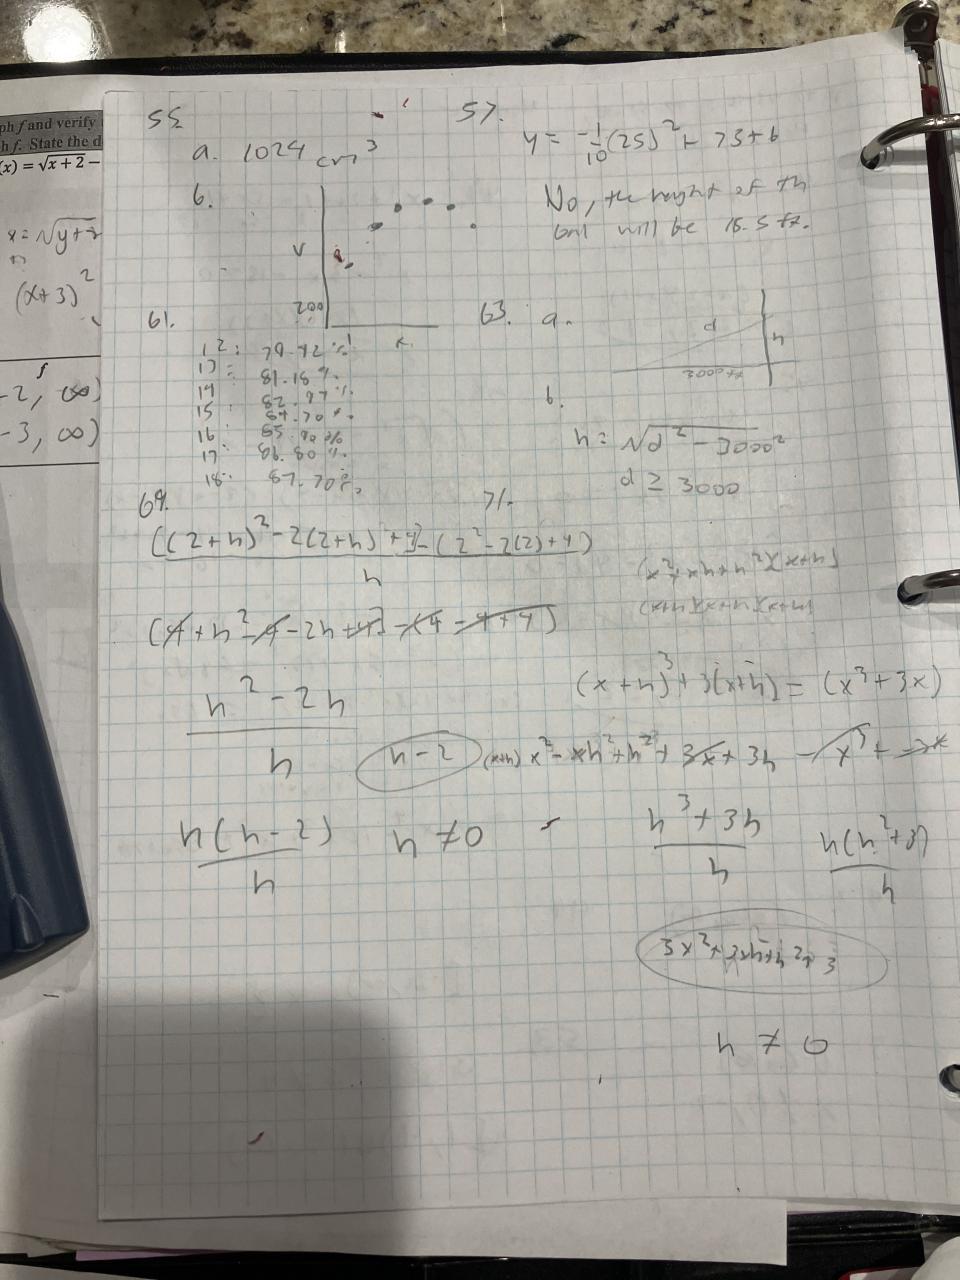 ph f and verify
h f. State the d
(x) = √x + 2 −
x = √y+2
(x+3)²
f
-2, ∞)
-3, ∞)
55
a. 1024 cm³
b.
V
200
x
57.
y = -1/10 (25)² + 75 + 6
No, the height of th
ball will be 18.5 ft.
61.
12:
13:
14
15
16:
17:
18:
63. a.
d
h
3000 ft
b.
h = √d² - 3000²
d ≥ 3000
69.
((2+h)² - 2(2+h) + 4) - (2² - 2(2) + 4)
h
(4 + h² - 4 - 2h + 4) - (4 - 4 + 4)
h² - 2h
h
h - 2
h(h - 2)
h
h ≠ 0
71.
(x+h)(x+h)(x+h)
(x + h)³ + 3(x+h) = (x³ + 3x)
(x+h) x² - xh² + h² + 3x + 3h - x³ + -3x
h³ + 3h
h
h(h² + 3)
h
3x² + 3xh + h² + 3
h ≠ 0